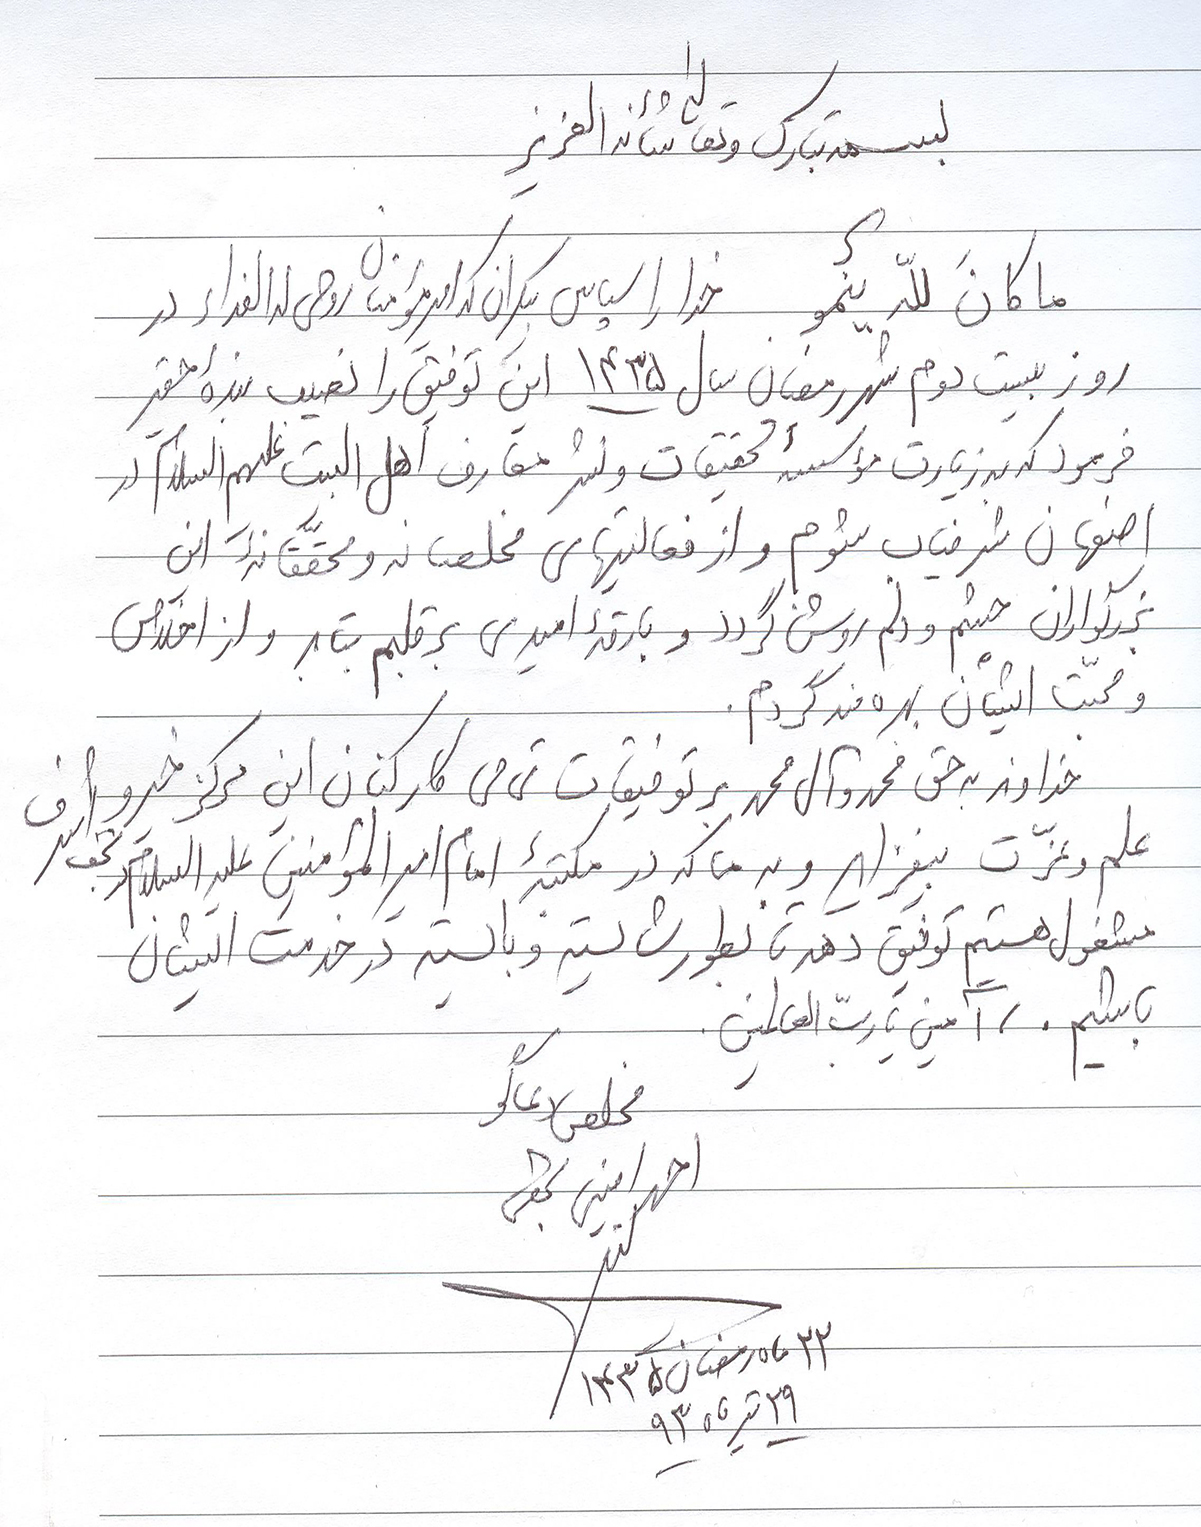 بسمه تبارک وتعالی شأنه العزیز
ما کانَ للّه یَنْمو خدا را سپاس بیکران که امیرمؤمنان روحی له الفداء در
روز بیست دوم شهر رمضان سال ۱۴۳۵ این توفیق را نصیب بندهٔ حقیر
فرمود که به زیارت مؤسسهٔ تحقیقات و نشر معارف اهل البیت علیهم السلام در
اصفهان شرفیاب شوم و از فعالیتهای مخلصانه و محقّقانهٔ این
بزرگواران چشم و دلم روشن گردد و بارقهٔ امیدی بر قلبم بتابد و از اخلاص
و محبّت ایشان بهره مند گردم.
خداوند به حق محمد وآل محمد بر توفیقات تمامی کارکنان این مرکز خیر و
علم وعزّت بیفزاید و به ما که در مکتبهٔ امام امیر المؤمنین علیه السلام در نجف اشرف
مشغول هستیم توفیق دهد تا بطور شایسته و بایسته در خدمت ایشان
باشیم. آمین یا ربّ العالمین.
مخلص دعاگو
احمد امینی نجفی
۲۲ ماه رمضان ۱۴۳۵
۲۹ تیر ماه ۹۳